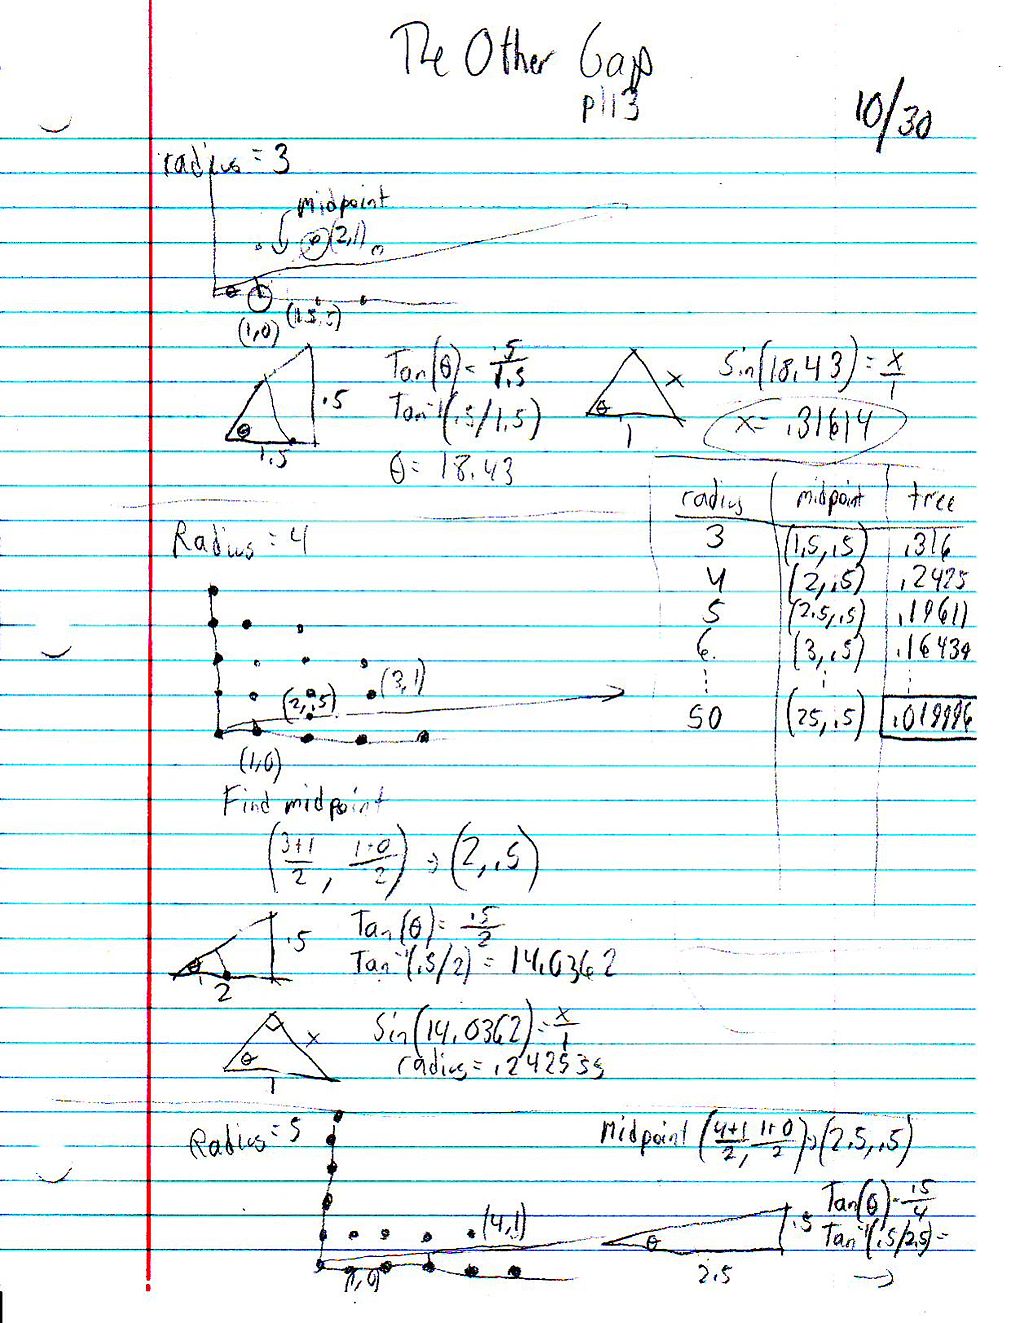 The Other Gap
p113
10/30
radius = 3
midpoint
(2,1)
(1,0) (1.5,.5)
.5
θ
1.5
Tan(θ) = .5/1.5
Tan⁻¹(.5/1.5)
θ = 18.43
θ
x
1
Sin(18.43) = x/1
x = .31614
radius midpoint tree
3 (1.5, .5) .316
4 (2, .5) .2425
5 (2.5, .5) .19611
6. (3, .5)
50 (25, .5) .019996
Radius = 4
(3,1)
(2,.5)
(1,0)
Find midpoint
(3+1/2, 1+0/2) → (2, .5)
.5
θ
2
Tan(θ) = .5/2
Tan⁻¹(.5/2) = 14.0362
θ
x
1
Sin(14.0362) = x/1
radius = .242535
Radius = 5
Midpoint (4+1/2, 1+0/2) → (2.5, .5)
(4,1)
1,0
θ
.5
2.5
Tan(θ) = .5/4
Tan⁻¹(.5/2.5) =
→